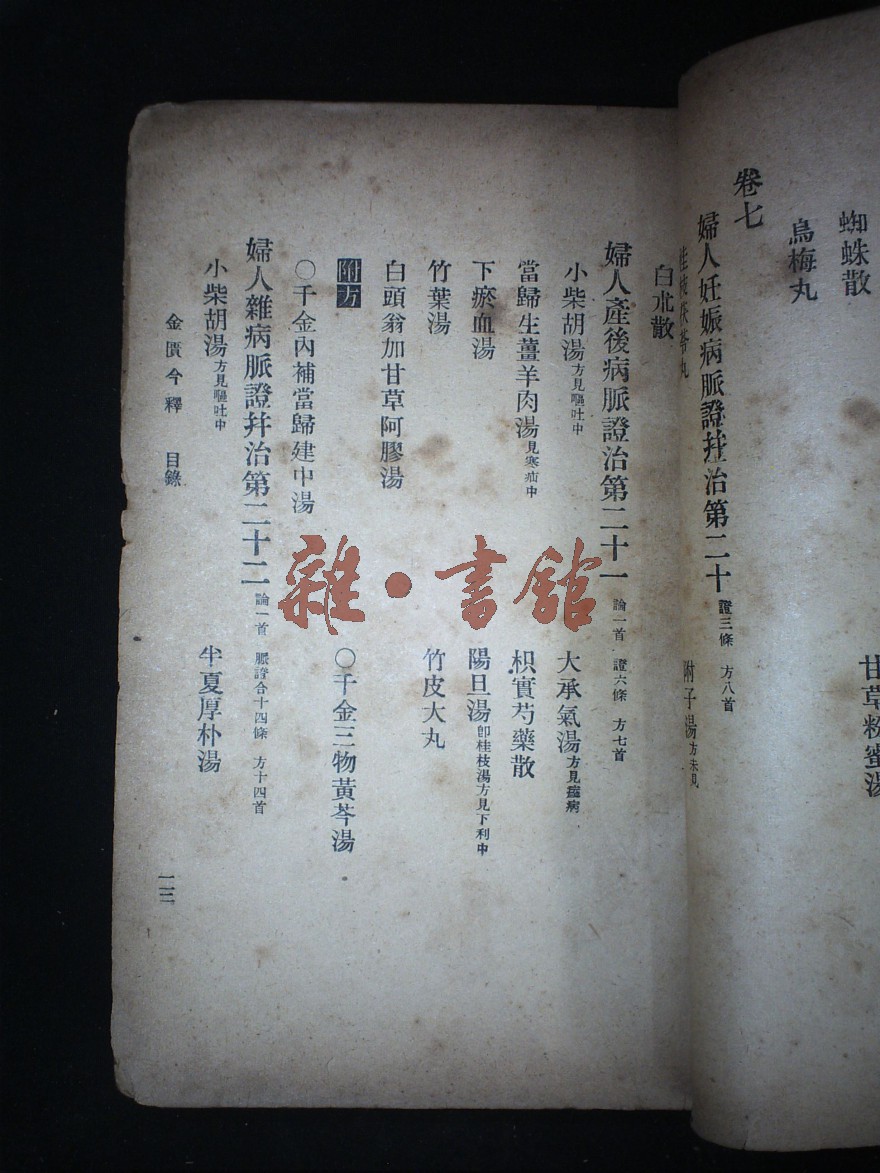 蜘蛛散　甘草粉蜜湯
烏梅丸
卷七
婦人妊娠病脈證幷治第二十　證三條　方八首
桂枝茯苓丸　附子湯方未見
白朮散
婦人產後病脈證治第二十一　論一首　證六條　方七首
小柴胡湯方見嘔吐中　大承氣湯方見痙病
當歸生薑羊肉湯見寒疝中　枳實芍藥散
下瘀血湯　陽旦湯卽桂枝湯方見下利中
竹葉湯　竹皮大丸
白頭翁加甘草阿膠湯
附方
○千金三物黃芩湯
○千金內補當歸建中湯
婦人雜病脈證幷治第二十二　論一首　脈證合十四條　方十四首
小柴胡湯方見嘔吐中　半夏厚朴湯
金匱今釋　目錄
一三
雜·書館